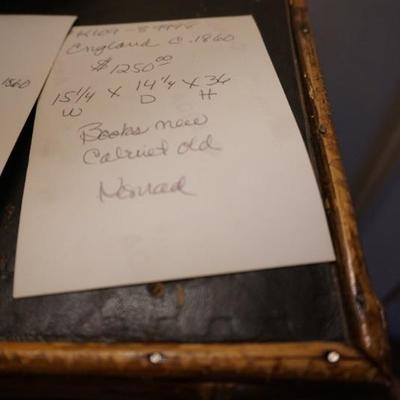 England c. 1860
$1250.00
15 1/4 x 14 1/4 x 36
W D H
Books new
Cabinet old
Nomad
1860